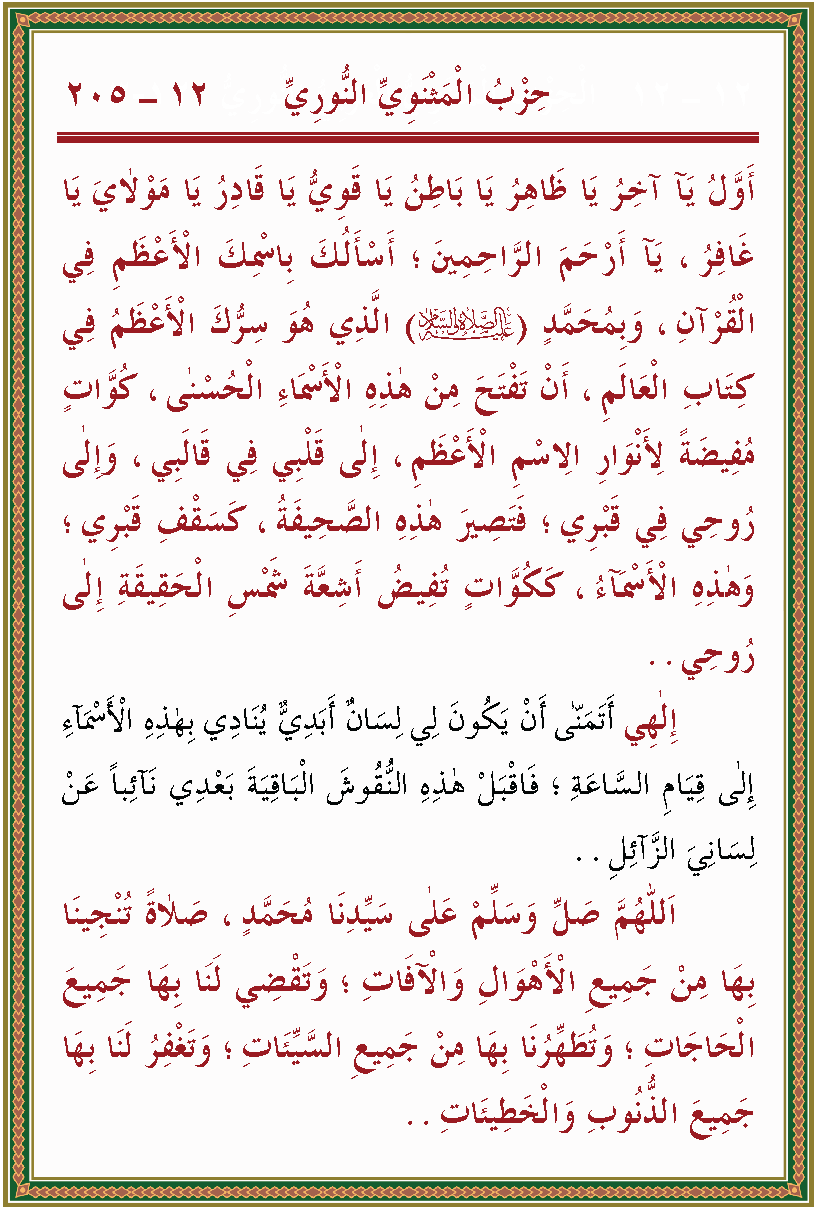 حِزْبُ الْمَثْنَوِيِّ النُّورِيِّ ١٢ ــ ٢٠٥
أَوَّلُ يَآ آخِرُ يَا ظَاهِرُ يَا بَاطِنُ يَا قَوِيُّ يَا قَادِرُ يَا مَوْلٰايَ يَا
غَافِرُ ، يَآ أَرْحَمَ الرَّاحِمِينَ ؛ أَسْأَلُكَ بِاسْمِكَ الْأَعْظَمِ فِي
الْقُرْآنِ ، وَبِمُحَمَّدٍ (عَلَيْهِ الصَّلَاةُ وَالسَّلَامُ) الَّذِي هُوَ سِرُّكَ الْأَعْظَمُ فِي
كِتَابِ الْعَالَمِ ، أَنْ تَفْتَحَ مِنْ هٰذِهِ الْأَسْمَاءِ الْحُسْنٰى ، كُوَّاتٍ
مُفِيضَةً لِأَنْوَارِ الِاسْمِ الْأَعْظَمِ ، إِلٰى قَلْبِي فِي قَالَبِي ، وَإِلٰى
رُوحِي فِي قَبْرِي ؛ فَتَصِيرَ هٰذِهِ الصَّحِيفَةُ ، كَسَقْفِ قَبْرِي ؛
وَهٰذِهِ الْأَسْمَآءُ ، كَكُوَّاتٍ تُفِيضُ أَشِعَّةَ شَمْسِ الْحَقِيقَةِ إِلٰى
رُوحِي . .
إِلٰهِي أَتَمَنّٰى أَنْ يَكُونَ لِي لِسَانٌ أَبَدِيٌّ يُنَادِي بِهٰذِهِ الْأَسْمَآءِ
إِلٰى قِيَامِ السَّاعَةِ ؛ فَاقْبَلْ هٰذِهِ النُّقُوشَ الْبَاقِيَةَ بَعْدِي نَآئِباً عَنْ
لِسَانِيَ الزَّآئِلِ . .
اَللّٰهُمَّ صَلِّ وَسَلِّمْ عَلٰى سَيِّدِنَا مُحَمَّدٍ ، صَلٰاةً تُنْجِينَا
بِهَا مِنْ جَمِيعِ الْأَهْوَالِ وَالْآفَاتِ ؛ وَتَقْضِي لَنَا بِهَا جَمِيعَ
الْحَاجَاتِ ؛ وَتُطَهِّرُنَا بِهَا مِنْ جَمِيعِ السَّيِّئَاتِ ؛ وَتَغْفِرُ لَنَا بِهَا
جَمِيعَ الذُّنُوبِ وَالْخَطِيئَاتِ . .